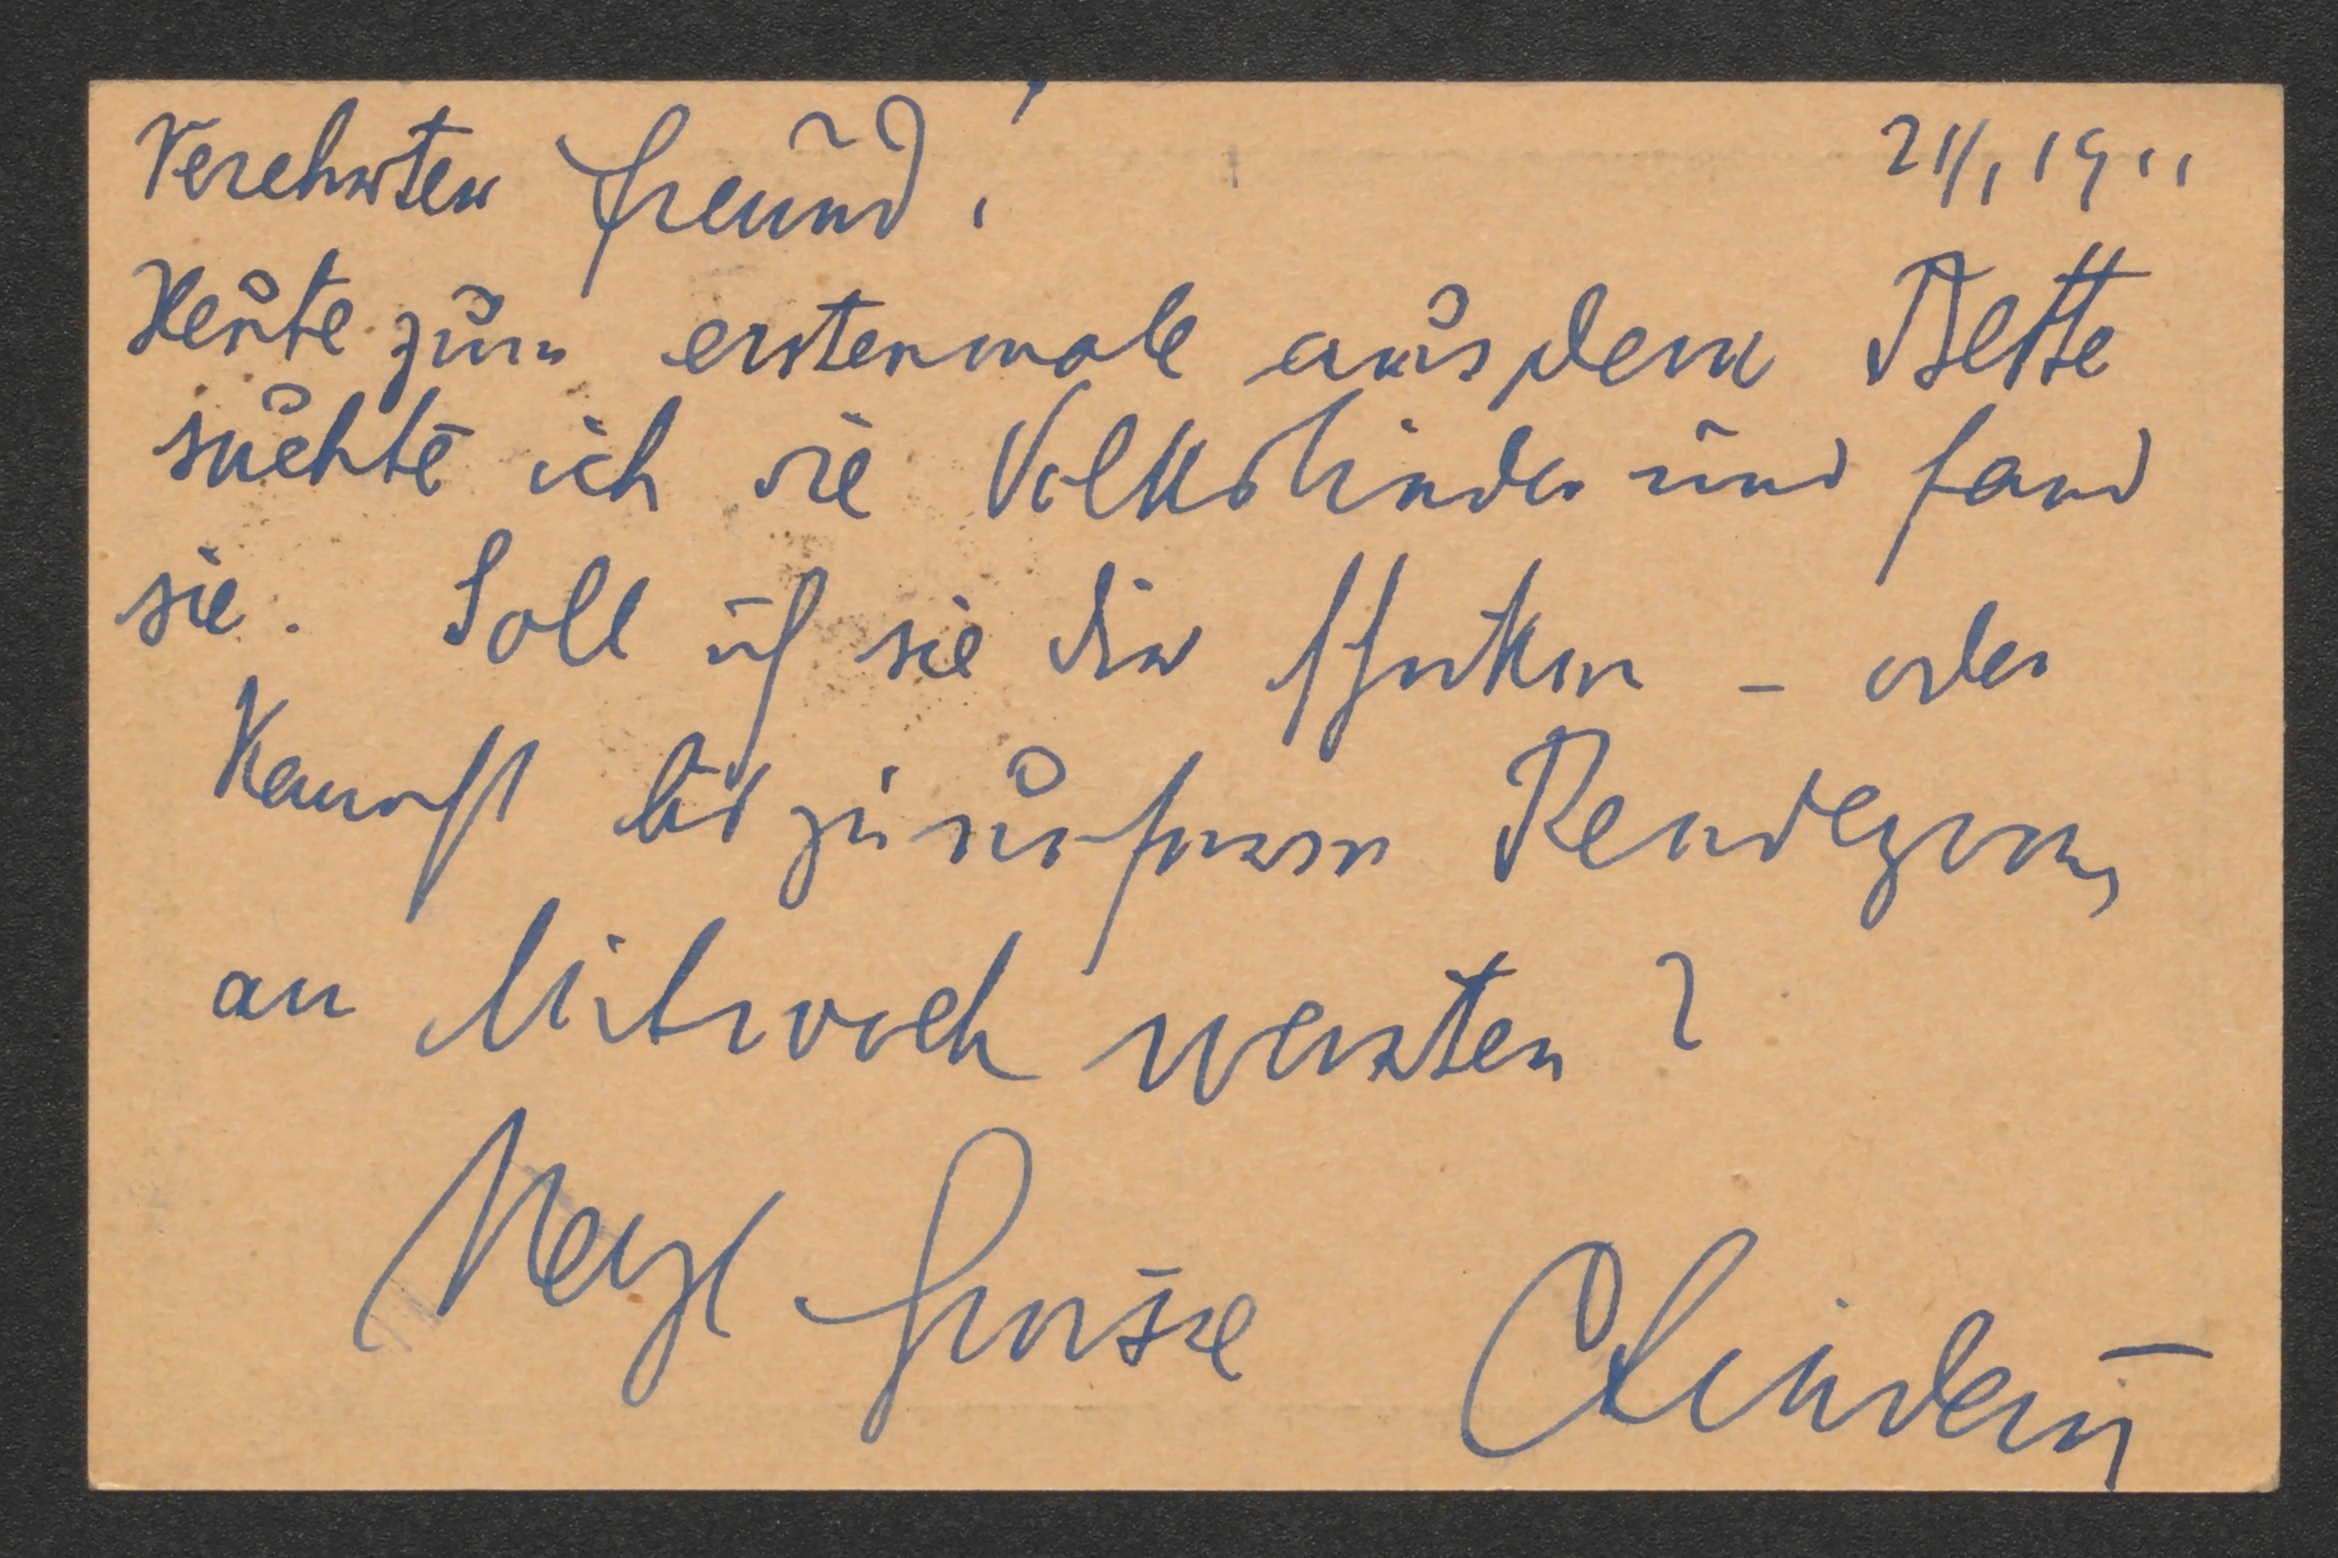 Verehrter Freund! 21/1 1911
Heute zum erstenmale aus dem Bette
suchte ich die Volkslieder und fand
sie. Soll ich sie dir schicken – oder
kannst bis zu unserem Rendezvous
am Mittwoch warten?
Herzl Grüsse